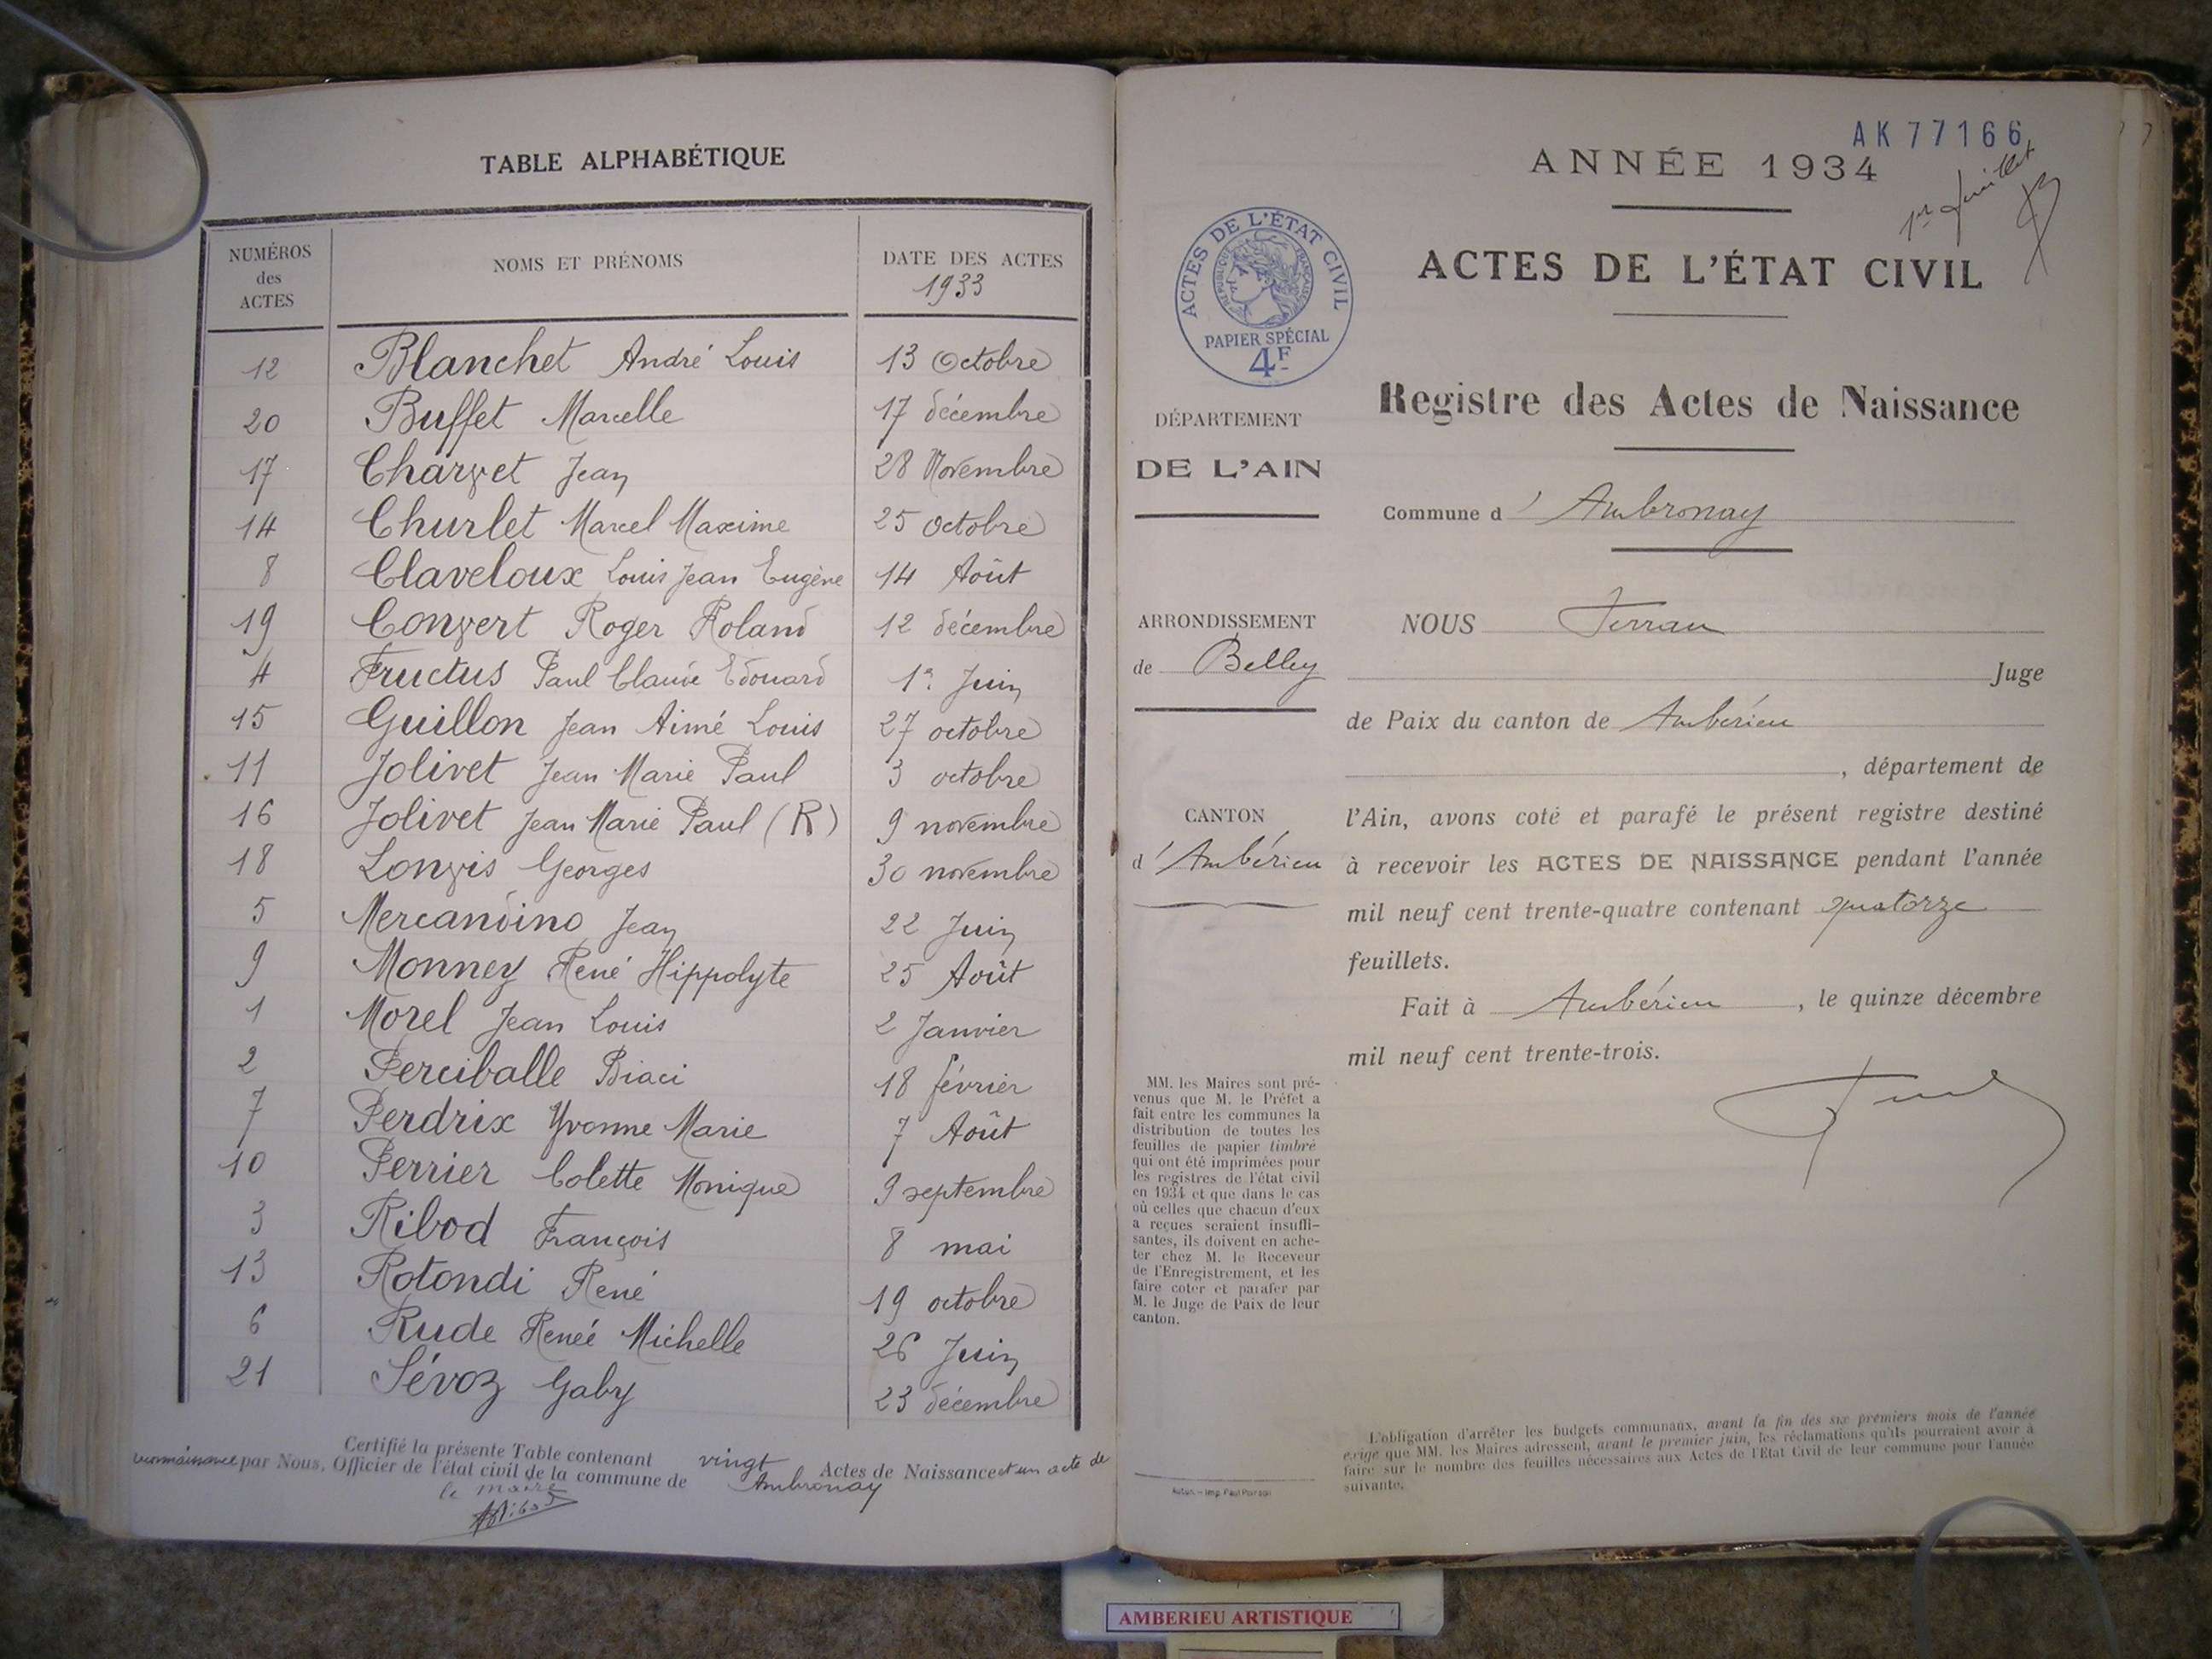 TABLE ALPHABÉTIQUE
NUMÉROS des ACTES
NOMS ET PRÉNOMS
DATE DES ACTES
1933
12 Blanchet André Louis 13 Octobre
20 Buffet Marcelle 17 décembre
17 Charvet Jean 28 Novembre
14 Churlet Marcel Maxime 25 octobre
8 Claveloux Louis Jean Eugène 14 Août
19 Convert Roger Roland 12 décembre
4 Fructus Paul Claude Edouard 1er Juin
15 Guillon Jean Aimé Louis 27 octobre
11 Jolivet Jean Marie Paul 3 octobre
16 Jolivet Jean Marie Paul (R) 9 novembre
18 Longis Georges 30 novembre
5 Mercandino Jean 22 Juin
9 Monney René Hippolyte 25 Août
1 Morel Jean Louis 2 Janvier
2 Perciballe Biaci 18 février
7 Perdrix Yvonne Marie 7 Août
10 Perrier Colette Monique 9 septembre
3 Ribod François 8 mai
13 Rotondi René 19 octobre
6 Rude Renée Michelle 26 Juin
21 Sévoz Gaby 23 décembre
Certifié la présente Table contenant vingt Actes de Naissance et un acte de
reconnaissance par Nous, Officier de l'état civil de la commune de Ambronay
le maire
AK 77166
ANNÉE 1934
1er Juillet
ACTES DE L'ÉTAT CIVIL
ACTES DE L'ÉTAT CIVIL
RÉPUBLIQUE FRANÇAISE
PAPIER SPÉCIAL
4F
Registre des Actes de Naissance
DÉPARTEMENT
DE L'AIN
Commune d' Ambronay
ARRONDISSEMENT
de Belley
NOUS
Juge
de Paix du canton de Ambérieu
, département de
CANTON
d' Ambérieu
l'Ain, avons coté et parafé le présent registre destiné
à recevoir les ACTES DE NAISSANCE pendant l'année
mil neuf cent trente-quatre contenant quatorze
feuillets.
Fait à Ambérieu, le quinze décembre
mil neuf cent trente-trois.
MM. les Maires sont pré-
venus que M. le Préfet a
fait entre les communes la
distribution de toutes les
feuilles de papier timbré
qui ont été imprimées pour
les registres de l'état civil
en 1934 et que dans le cas
où celles que chacun d'eux
a reçues seraient insuffi-
santes, ils doivent en ache-
ter chez M. le Receveur
de l'Enregistrement, et les
faire coter et parafer par
M. le Juge de Paix de leur
canton.
Autun. — Imp. Paul Poirson
L'obligation d'arrêter les budgets communaux, avant la fin des six premiers mois de l'année
exige que MM. les Maires adressent, avant le premier juin, les réclamations qu'ils pourraient avoir à
faire sur le nombre des feuilles nécessaires aux Actes de l'Etat Civil de leur commune pour l'année
suivante.
AMBERIEU ARTISTIQUE